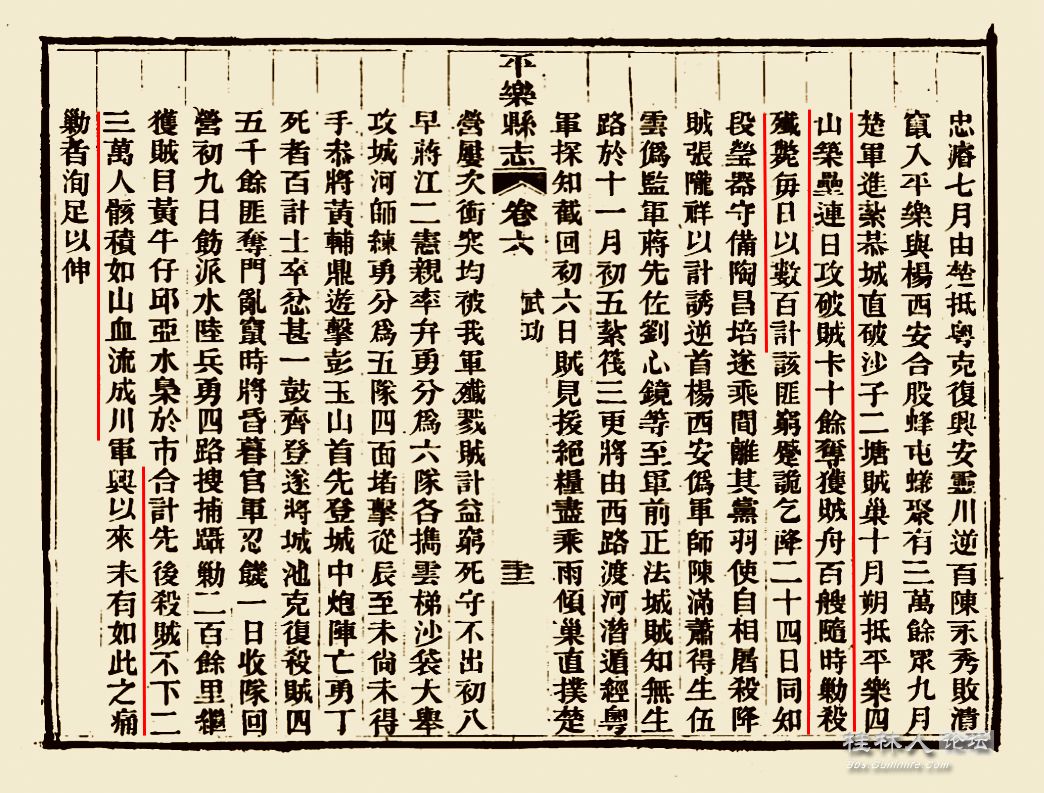 忠瘠七月由楚抵粤克復興安靈川逆首陳永秀敗潰
竄入平樂與楊西安合股蜂屯蟻聚有三萬餘眾九月
楚軍進紮恭城直破沙子二塘賊巢十月朔抵平樂四
山築壘連日攻破賊卡十餘奪獲賊舟百艘隨時勦殺
殲斃每日以數百計該匪窮蹙詭乞降二十四日同知
段瑩器守備陶昌培遂乘間離其黨羽使自相屠殺降
賊張隴祥以計誘逆首楊西安偽軍師陳滿蕭得生伍
雲偽監軍蔣先佐劉心鏡等至軍前正法城賊知無生
路於十一月初五紮筏三更將由西路渡河潛遁經粤
軍探知截回初六日賊見援絕糧盡乘雨傾巢直撲楚
平樂縣志 卷六 武功 三三
營屢次衝突均被我軍殲戮賊計益窮死守不出初八
早蔣江二憲親率弁勇分為六隊各攜雲梯沙袋大舉
攻城河師練勇分為五隊四面堵擊從辰至未尙未得
手叅將黃輔鼎遊擊彭玉山首先登城中炮陣亡勇丁
死者百計士卒忿甚一鼓齊登遂將城池克復殺賊四
五千餘匪奪門亂竄時將昏暮官軍忍饑一日收隊回
營初九日飭派水陸兵勇四路搜捕躡勦二百餘里繼
獲賊目黃牛仔邱亞水梟於市合計先後殺賊不下二
三萬人骸積如山血流成川軍興以來未有如此之痛
勦者洵足以伸
桂林人论坛
Bbs.Guilinlife.com